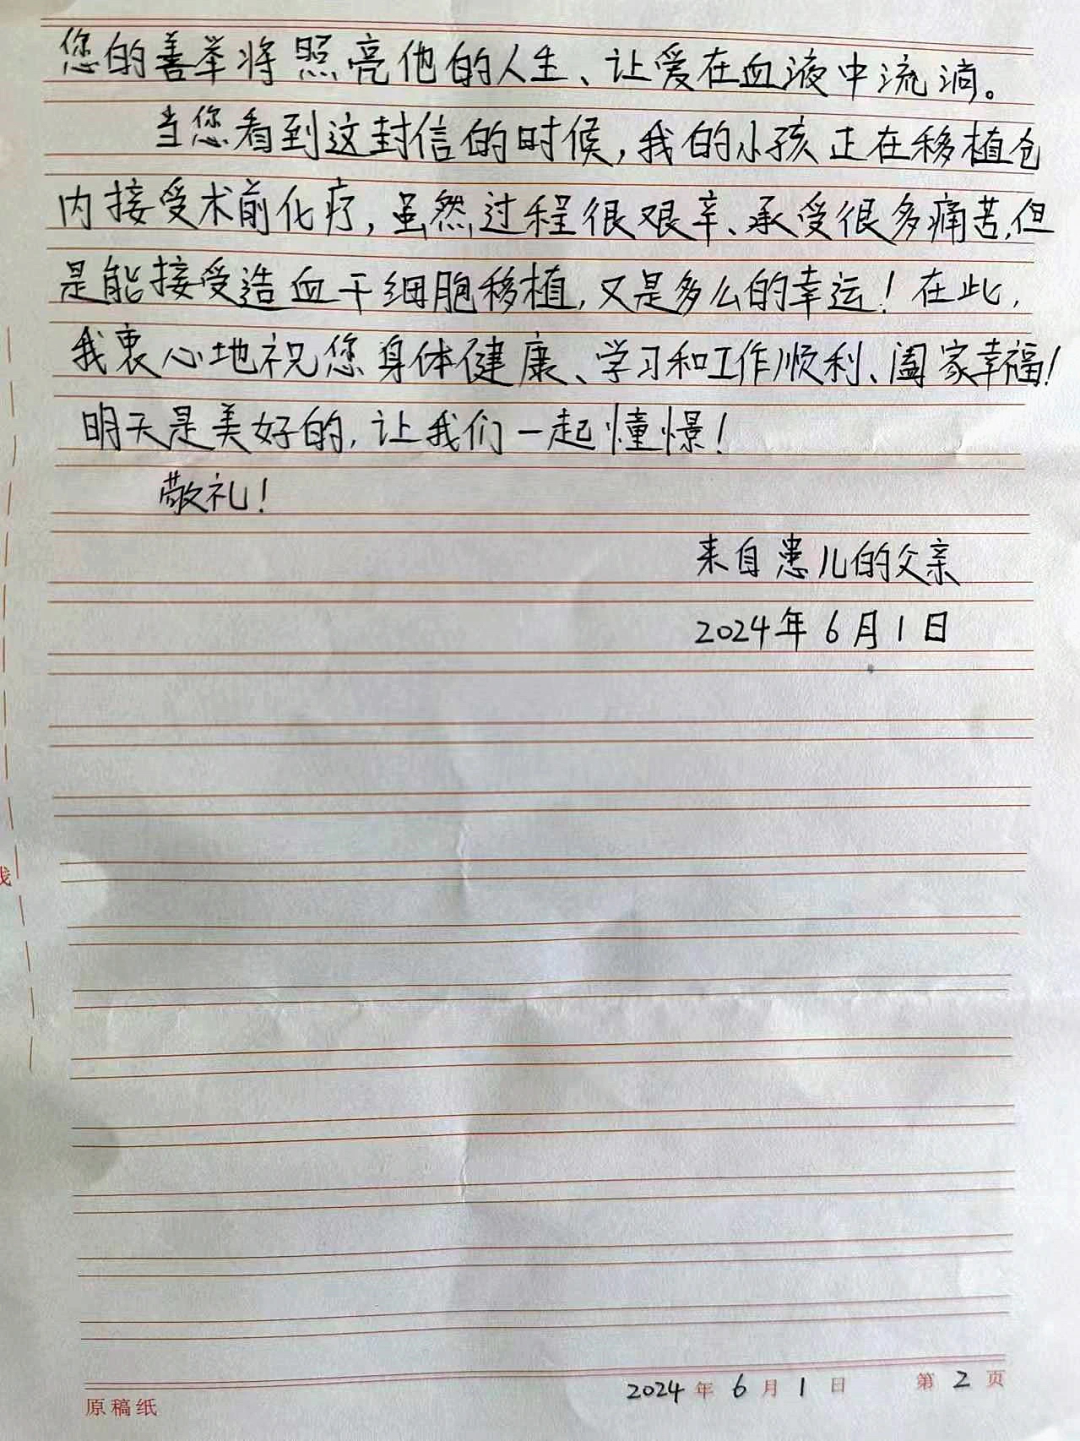 您的善举将照亮他的人生、让爱在血液中流淌。
当您看到这封信的时候,我的小孩正在移植仓
内接受术前化疗,虽然过程很艰辛、承受很多痛苦,但
是能接受造血干细胞移植,又是多么的幸运!在此,
我衷心地祝您身体健康、学习和工作顺利、阖家幸福!
明天是美好的,让我们一起憧憬!
敬礼!
来自患儿的父亲
2024年6月1日
2024年6月1日 第2页
原稿纸